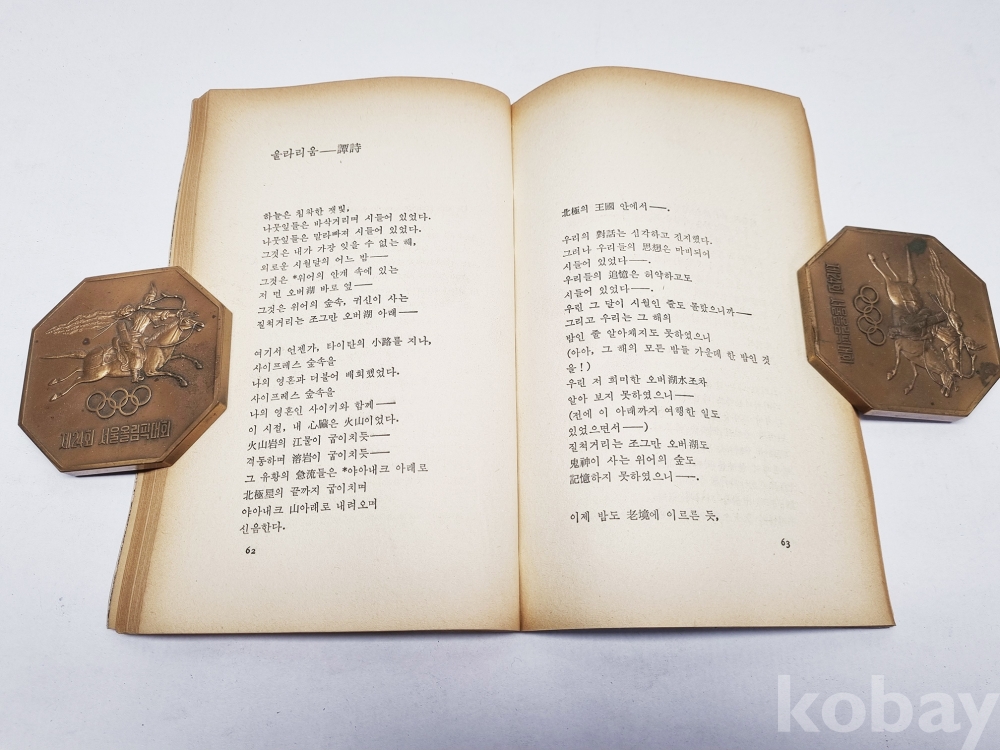 울라리움──譚詩
하늘은 침착한 잿빛,
나뭇잎들은 바삭거리며 시들어 있었다.
나뭇잎들은 말라빠져 시들어 있었다.
그것은 내가 가장 잊을 수 없는 해,
외로운 시월달의 어느 밤──
그것은 *위어의 안개 속에 있는
저 먼 오버湖 바로 옆──
그것은 위어의 숲속, 귀신이 사는
질척거리는 조그만 오버湖 아래──
여기서 언젠가, 타이탄의 小路를 지나,
사이프레스 숲속을
나의 영혼과 더불어 배회했었다.
사이프레스 숲속을
나의 영혼인 사이키와 함께──
이 시절, 내 心臟은 火山이었다.
火山岩의 江물이 굽이치듯──
격동하며 溶岩이 굽이치듯──
그 유황의 急流들은 *야아내크 아래로
北極星의 끝까지 굽이치며
야아내크 山아래로 내려오며
신음한다.
62
北極의 王國 안에서──.
우리의 對話는 심각하고 진지했다.
그러나 우리들의 思想은 마비되어
시들어 있었다──.
우리들의 追憶은 허약하고도
시들어 있었다──.
우린 그 달이 시월인 줄도 몰랐으니까──
그리고 우리는 그 해의
밤인 줄 알아채지도 못하였으니
(아아, 그 해의 모든 밤들 가운데 한 밤인 것
을!)
우린 저 희미한 오버湖水조차
알아 보지 못하였으니──
(전에 이 아래까지 여행한 일도
있었으면서──)
질척거리는 조그만 오버湖도
鬼神이 사는 위어의 숲도
記憶하지 못하였으니──.
이제 밤도 老境에 이르른 듯,
63
제24회 서울올림픽대회
제24회 서울올림픽대회
kobay